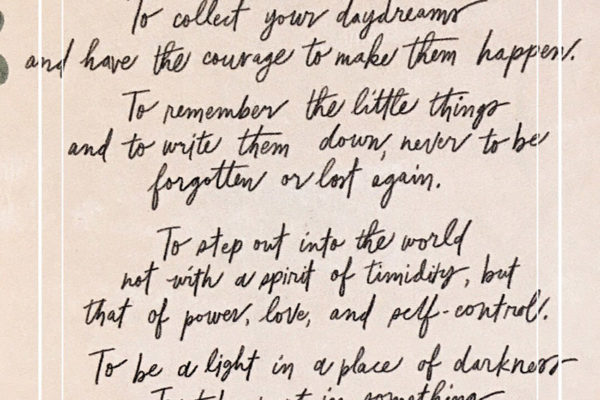 To collect your daydreams
and have the courage to make them happen.
To remember the little things
and to write them down, never to be
forgotten or lost again.
To step out into the world
not with a spirit of timidity, but
that of power, love, and self-control.
To be a light in a place of darkness
in something